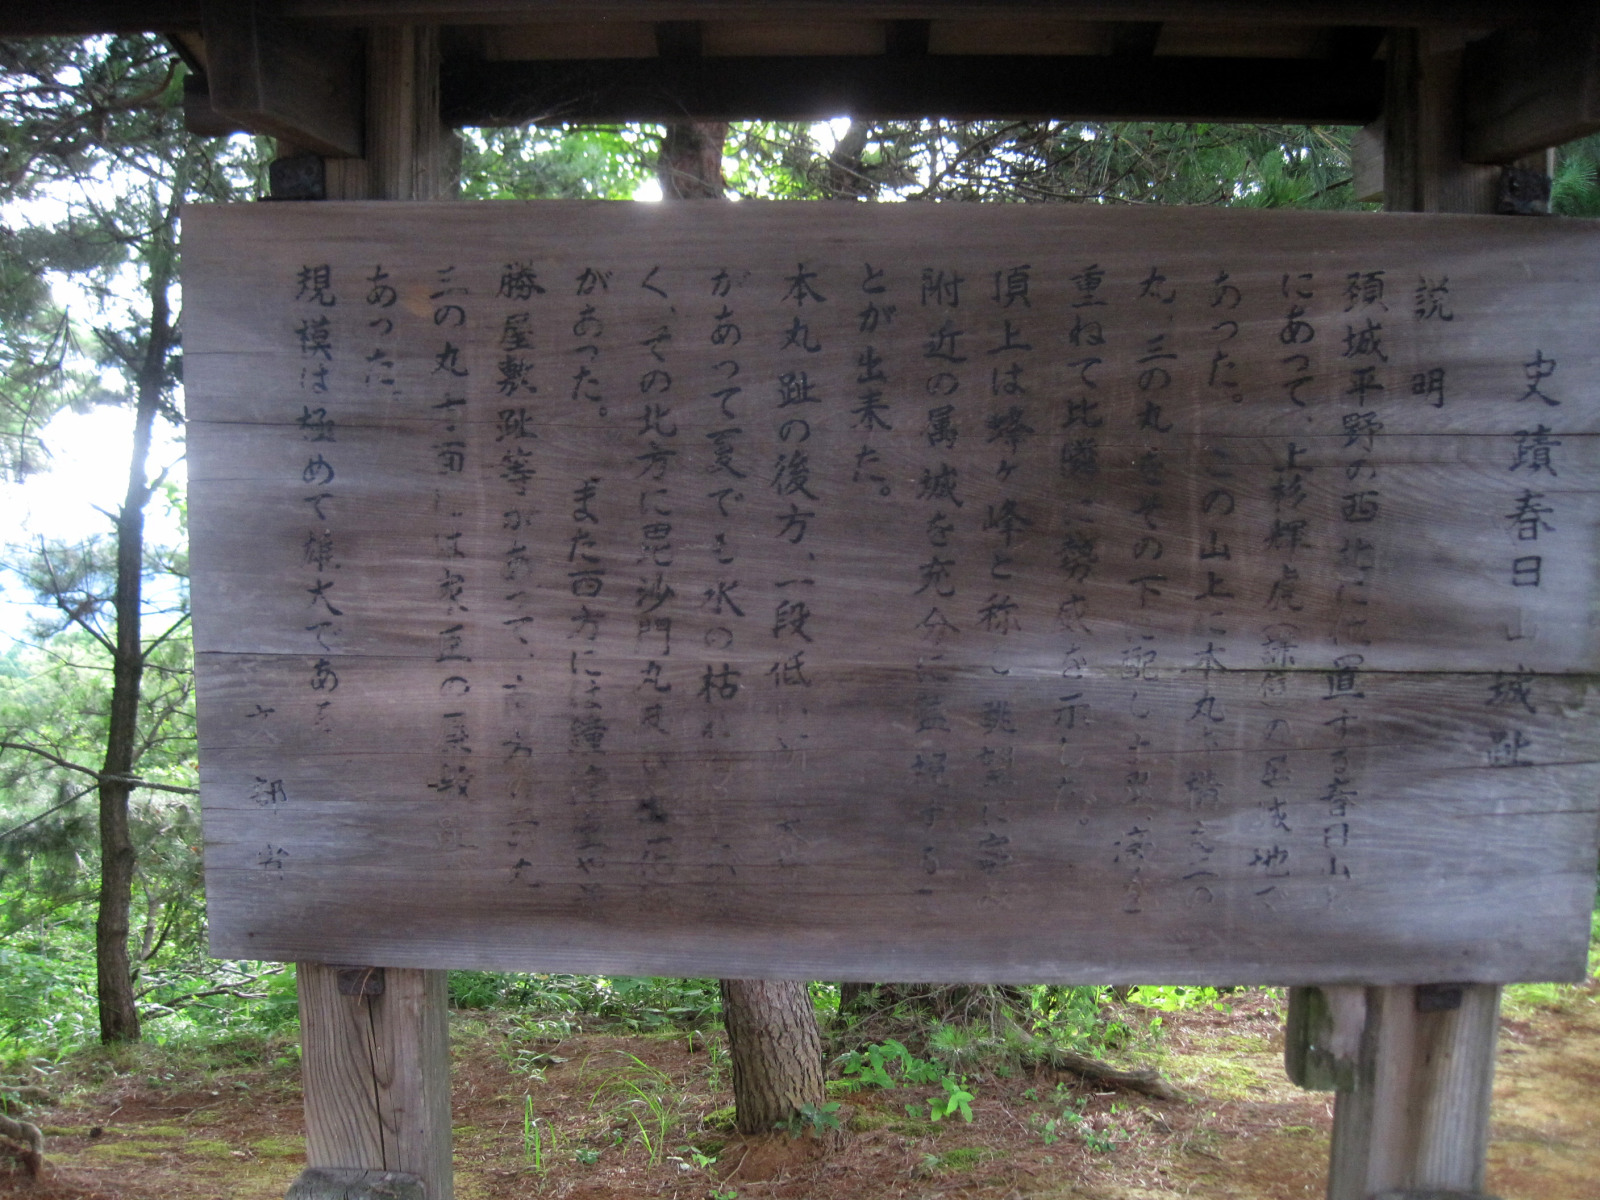 史蹟春日山城趾
説明
頚城平野の西北に位置する春日山
にあって、上杉輝虎(謙信)の居城地で
あった。この山上に本丸を構え二の
丸、三の丸をその下に配し
重ねて比隣に勢威を示した。
頂上は蜂ヶ峰と称し眺望に
附近の属城を充分に監視するこ
とが出来た。
本丸趾の後方、一段低い所に
があって夏でも水の枯れ
く、その北方に毘沙門丸及び
があった。また西方には鐘
勝屋敷趾等があって、
三の丸方面には家臣の屋敷趾
あった。
規模は極めて雄大である
文部省